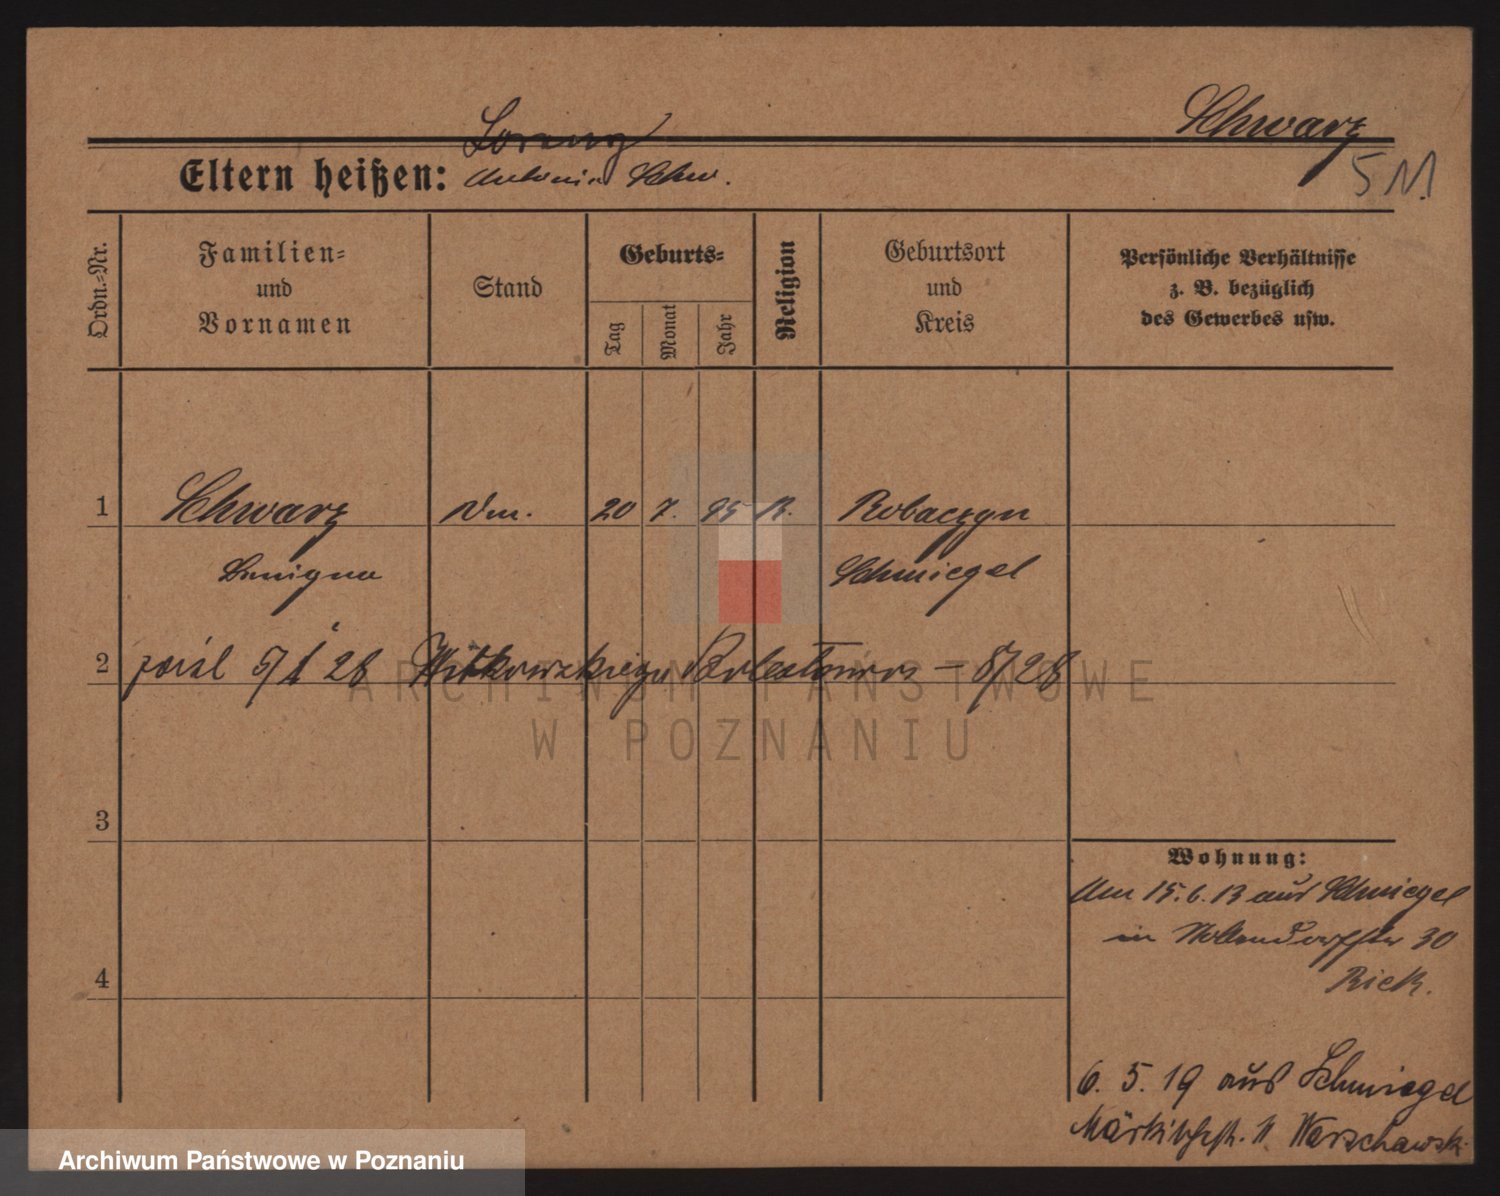 Schwarz
Lorenz
Eltern heißen: Antonin Schw.
5 M.
Ordn.=Nr.
Familien=
und
Vornamen
Stand
Geburts=
Tag
Monat
Jahr
Religion
Geburtsort
und
Kreis
Persönliche Verhältnisse
z. B. bezüglich
des Gewerbes usw.
1 Schwarz Dm. 20 7. 95 R. Robaczyn
Schmiegel
2 5/1 28 Witkowskiego 5/28
3
4
Wohnung:
Am 15.6.13 aus Schmiegel
in Nollendorfstr 30
Rick.
6. 5. 19 aus Schmiegel
Märkischestr. 11 Warschawsk.
ARCHIWUM PAŃSTWOWE
W POZNANIU
Archiwum Państwowe w Poznaniu